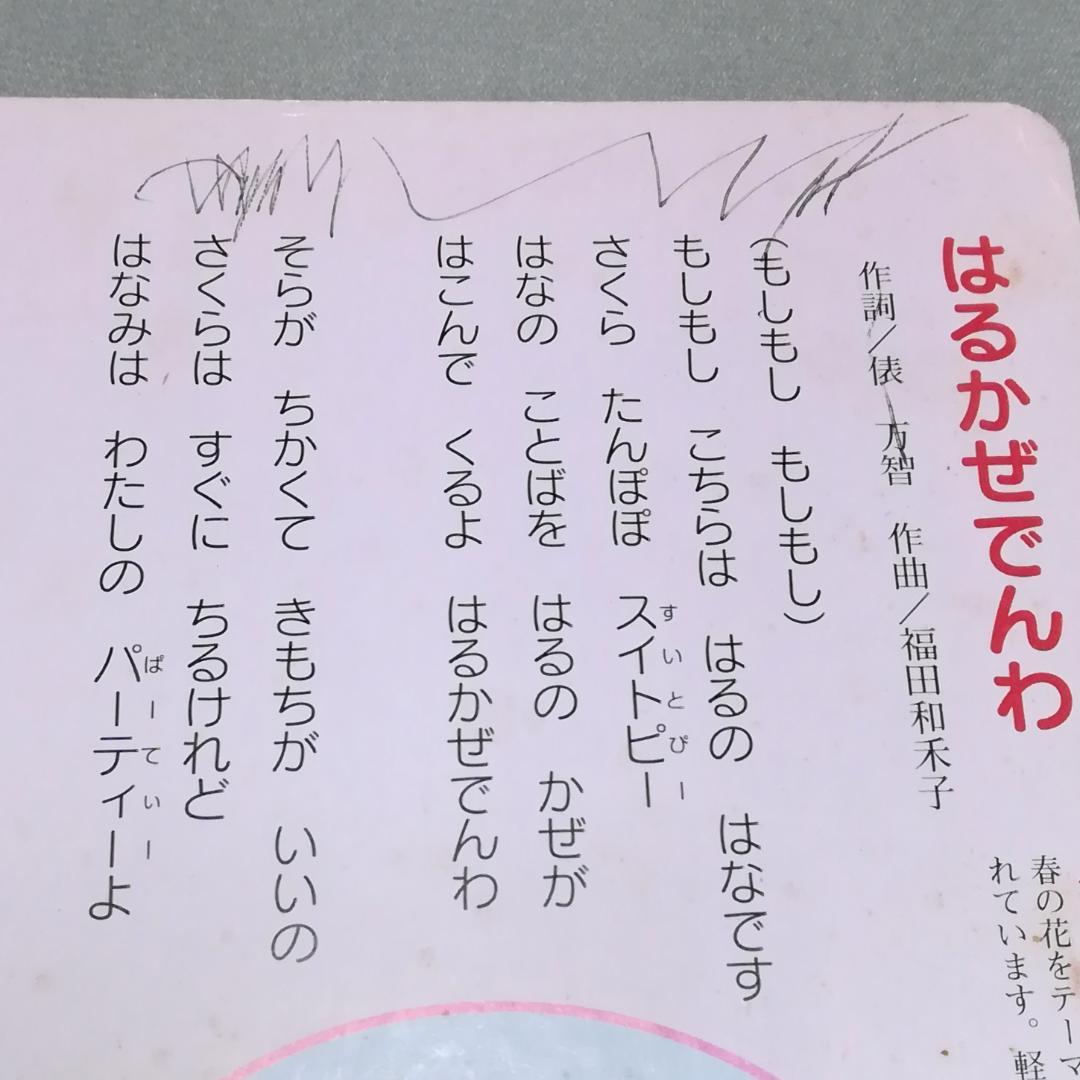 はるかぜでんわ
作詞／俵 万智 作曲／福田和禾子
(もしもし もしもし)
もしもし こちらは はるの はなです
さくら たんぽぽ スイトピー
すいとぴー
はなの ことばを はるの かぜが
はこんで くるよ はるかぜでんわ
そらが ちかくて きもちが いいの
さくらは すぐに ちるけれど
はなみは わたしの パーティーよ
ぱーてぃー
春の花をテーマ
れています。軽